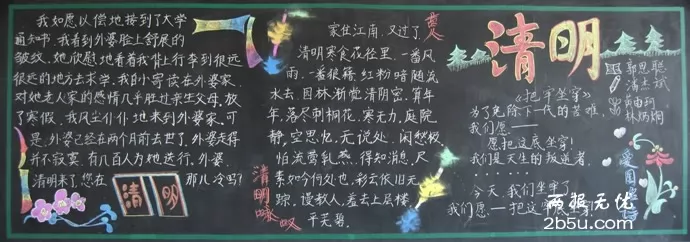 我如愿以偿地接到了大学
通知书，我看到外婆脸上舒展的
皱纹，她欣慰地看着我背上行李到很远
很远的地方去求学。我自小寄读在外婆家，
对她老人家的感情几乎胜过亲生父母，放
了寒假，我风尘仆仆地来到外婆家，可
是，外婆已经在两个月前去世了，外婆走得
并不寂寞，有几百人为她送行。外婆，
清明来了，您在
那儿冷吗？
清明
家住江南，又过了
清明寒食。花径里，一番风
雨，一番狼籍。红粉暗随流
水去，园林渐觉清阴密。算年
年、落尽刺桐花，寒无力。庭院
静，空相忆。无说处，闲愁极。
怕流莺乳燕，得知消息。尺
素如今何处也，彩云依旧无
踪迹。谩教人、羞去上层楼，
平芜碧。
清明
清明
《把牢坐穿》
为了免除下一代的苦难，
我们愿——
愿把这牢底坐穿！
我们是天生的叛逆者，
……
今天，我们坐牢了，
我们愿——把这牢底坐穿！
郭思聪
林炳炯
爱国
两报无忧
2b5u.com